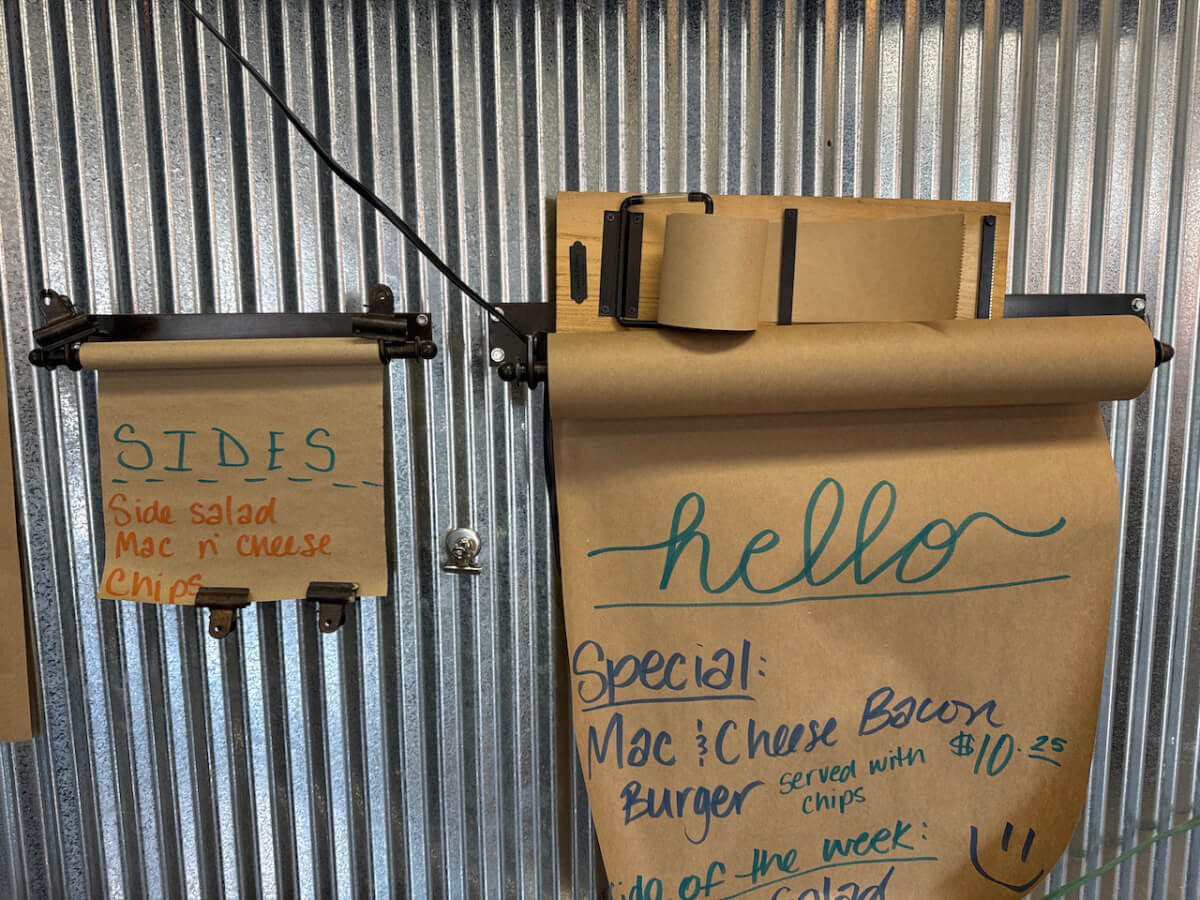 SIDES
Side salad
Mac n' cheese
Chips
hello
Special:
Mac & Cheese Bacon
Burger served with chips $10.25
Side of the week:
Salad